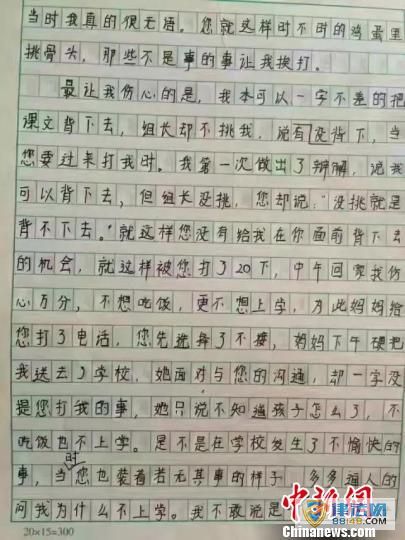 当时我真的很无语。您就这样时不时的鸡蛋里
挑骨头，那些不是事的事让我挨打。
最让我伤心的是，我本可以一字不差的把
课文背下去，组长却不挑我，说有没背下，当
您要过来打我时。我第一次做出了辩解，说我
可以背下去，但组长没挑，您却说：“没挑就是
背不下去。”就这样您没有给我在你面前背下去
的机会，就这样被您打了20下，中午回家我伤
心万分，不想吃饭，更不想上学，为此妈妈给
您打了电话，您先选择了不接，妈妈下午硬把
我送去了学校，她面对与您的沟通，却一字没
提您打我的事，她只说不知道孩子怎么了，不
吃饭也不上学。是不是在学校发生了不愉快的
事，当时您也装着若无其事的样子 多多逼人的
问我为什么不上学。我不敢说是
20×15=300
中新网
CHINANEWS
Chinanews.com
律法网
88148.com